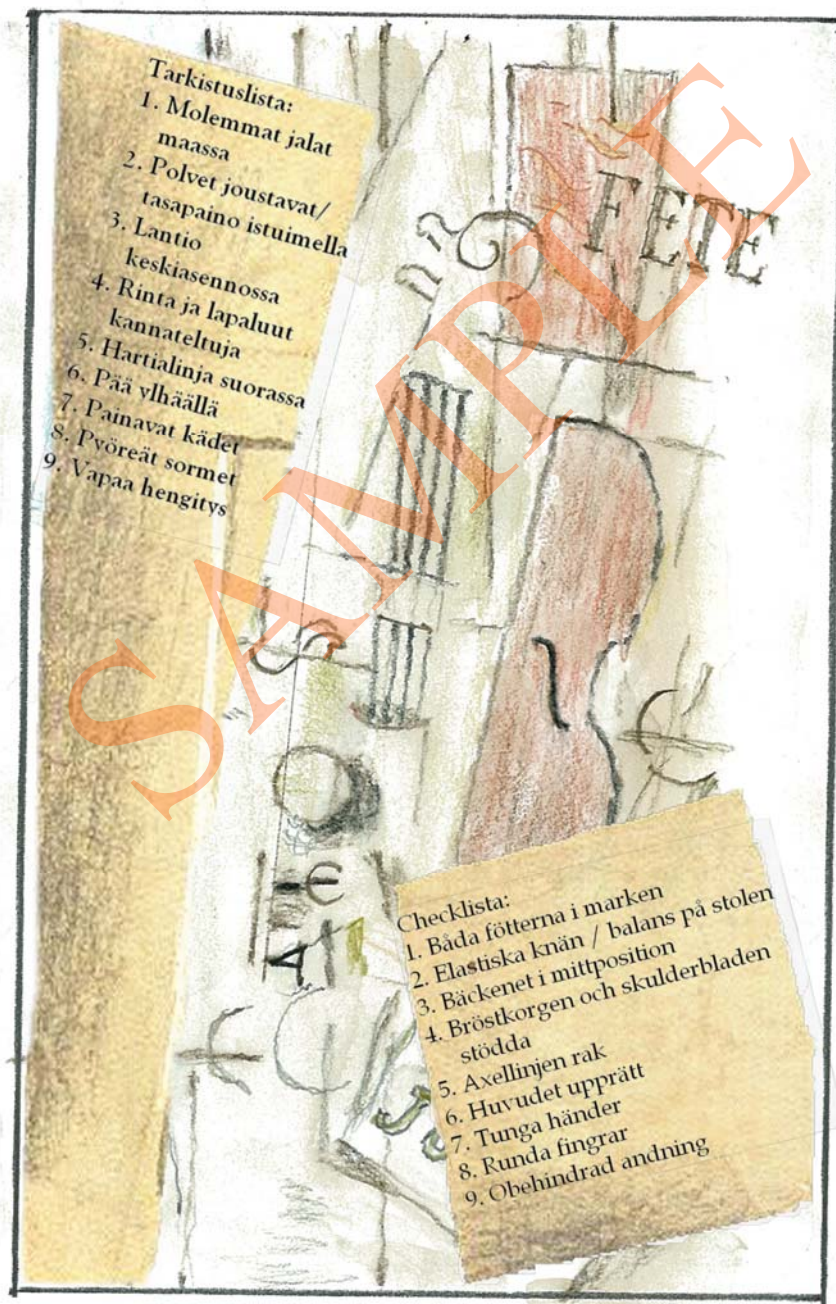 Tarkistuslista:
1. Molemmat jalat
maassa
2. Polvet joustavat/
tasapaino istuimella
3. Lantio
keskiasennossa
4. Rinta ja lapaluut
kannateltuja
5. Hartialinja suorassa
6. Pää ylhäällä
7. Painavat kädet
8. Pyöreät sormet
9. Vapaa hengitys
FETE
SAMPLE
Checklista:
1. Båda fötterna i marken
2. Elastiska knän / balans på stolen
3. Bäckenet i mittposition
4. Bröstkorgen och skulderbladen
stödda
5. Axellinjen rak
6. Huvudet upprätt
7. Tunga händer
8. Runda fingrar
9. Obehindrad andning